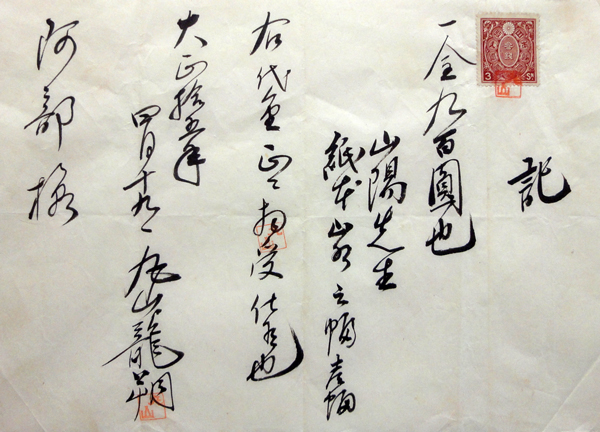 記
一金九百圓也
山陽先生
紙本山水之幅壱幅
右代金正ニ相受仕候也
大正拾五年
四月十九日
丸山龍朔
阿部様
3 Sn